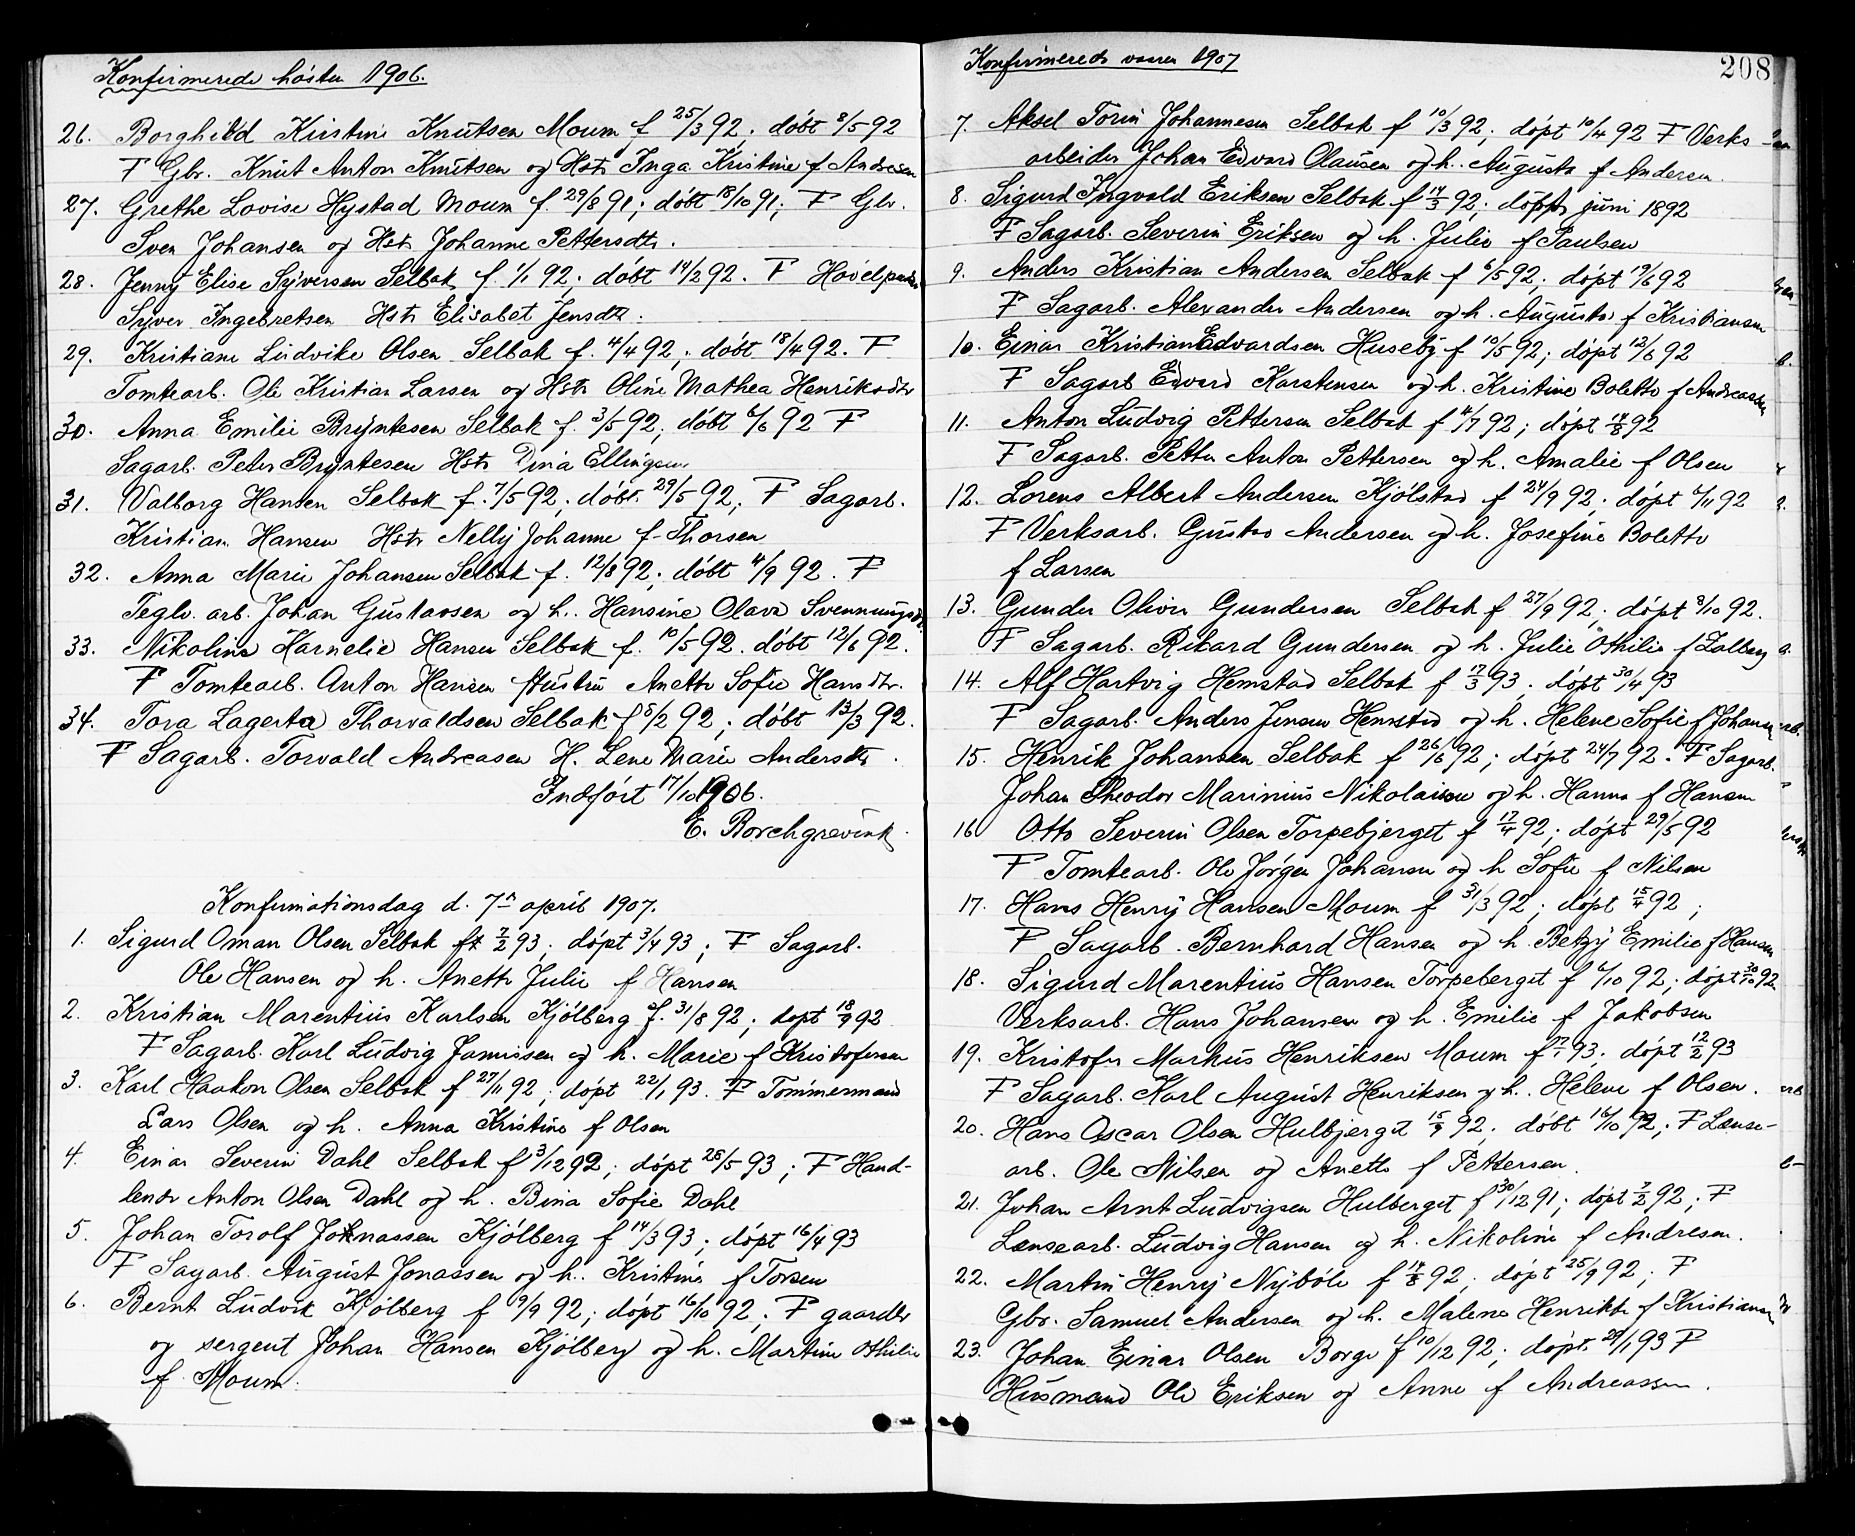 Konfirmerede hösten 1906.
26. Borghild Kristine Knutsen Moum f 25/3 92. døbt 8/5 92
F Gbr. Knut Anton Knutsen og Hstr Inga Kristine f Andresen
27. Grethe Lovise Hystad Moum f. 29/8 91; døbt 18/10 91; F Gbr.
Sven Johansen og Hstr Johanne Pettersdtr.
28. Jenny Elise Syversen Selbak f. 1/1 92. døbt 14/2 92. F
Syver Ingebretsen Hstr Elisabet Jensdtr.
29. Kristiane Ludvike Olsen Selbak f. 4/4 92. døbt 18/4 92. F
Tomtearb. Ole Kristian Larsen og Hstr Oline Mathea Henriksdtr
30. Anna Emilie Bryntesen Selbak f. 3/5 92; døbt 6/6 92 F
Sagarb. Peter Bryntesen Hstr Dina Ellingsen
31. Valborg Hansen Selbak f. 7/5 92; døbt. 29/5 92; F Sagarb.
Kristian Hansen Hstr Nelly Johanne f. Thorsen
32. Anna Marie Johansen Selbak f. 12/8 92; døbt 4/9 92. F
Teglv. arb. Johan Gustavsen og h. Hansine Olava Svenningsd.
33. Nikoline Karnelie Hansen Selbak f. 10/5 92. døbt 12/6 92.
F Tomtearb. Anton Hansen Hustru Anette Sofie Hansdtr.
34. Tora Lagerta Thorvaldsen Selbak f 5/2 92; døbt 13/3 92.
F Sagarb. Torvald Andreasen H. Lene Marie Andersdtr.
Indført 17/10 1906.
E. Borchgrevink.
Konfirmationsdag d. 7n april 1907.
1. Sigurd Oman Olsen Selbak f 7/2 93; døpt 3/4 93; F Sagarb.
Ole Hansen og h. Anette Julie f Hansen
2. Kristian Marentius Karlsen Kjølberg f. 31/8 92; døpt 18/9 92
F Sagarb. Karl Ludvig Jamissen og h. Marie f Kristofersen
3. Karl Haakon Olsen Selbak f 27/11 92; døpt 22/1 93. F Tømmermand
Lars Olsen og h. Anna Kristine f Olsen
4. Einar Severin Dahl Selbak f 3/12 92; døpt 28/5 93; F Hand-
lende Anton Olsen Dahl og h. Bina Sofie Dahl
5. Johan Torolf Johnassen Kjølberg f 14/3 93; døpt 16/4 93
F Sagarb. August Jonassen og h. Kristine f Torsen
6. Bernt Ludvik Kjølberg f 9/9 92; døpt 16/10 92; F gaardbr
og sergent Johan Hansen Kjølberg og h. Martine Othilie
f. Moum.
Konfirmerede vaaren 1907
208
7. Aksel Torin Johannesen Selbak f 10/3 92; døpt 10/4 92 F Verks-
arbeider Johan Edvard Olausen og h. Augusta f Andersen.
8. Sigurd Ingvald Eriksen Selbak f 14/3 92; døpt juni 1892
F Sagarb. Severin Eriksen og h. Julie f Paulsen
9. Anders Kristian Andersen Selbak f 6/5 92; døpt 19/6 92
F Sagarb. Alexander Andersen og h. Augusta f Kristiansen
10. Einar Kristian Edvardsen Huseby f 10/5 92; døpt 12/6 92
F Sagarb Edvard Karstensen og h. Kristine Bolette f Andreassen
11. Anton Ludvig Pettersen Selbak f 4/7 92; døpt 14/8 92
F Sagarb. Petter Anton Pettersen og h. Amalie f Olsen
12. Lorens Albert Andersen Kjølstad f 24/9 92; døpt 6/11 92
F Verksarb. Gustav Andersen og h. Josefine Bolette
f Larsen
13. Gunder Oliver Gundersen Selbak f 27/9 92; døpt 8/10 92.
F Sagarb. Rikard Gundersen og h. Julie Othilie f
14. Alf Hartvig Hemstad Selbak f 17/3 93; døpt 30/4 93
F Sagarb. Anders Jensen Hemstad og h. Helene Sofie f Johansen
15. Henrik Johansen Selbak f 26/6 92; døpt 24/7 92. F Sagarb.
Johan Theodor Marinius Nikolaisen og h. Hanna f Hansen
16 Otto Severin Olsen Torpebjerget f 17/4 92; døpt 29/5 92
F Tomtearb. Ole Jørgen Johansen og h Sofie f Nilsen
17. Hans Henry Hansen Moum f 31/3 92; døpt 15/4 92;
F Sagarb. Bernhard Hansen og h. Betzy Emilie f Hansen
18. Sigurd Marentius Hansen Torpeberget f 6/10 92; døpt 30/10 92
Verksarb. Hans Johansen og h. Emilie f Jakobsen
19. Kristofer Markus Henriksen Moum f 17/1 93; døpt 12/2 93
F Sagarb. Karl August Henriksen og h. Helene f Olsen.
20. Hans Oscar Olsen Hulbjerget 15/9 92; døbt 16/10 92; F Lense-
arb. Ole Nilsen og Anette f Pettersen.
21. Johan Arnt Ludvigsen Hulberget f 30/12 91; døpt 7/2 92; F
Lensearb. Ludvig Hansen og h. Nikoline f Andresen.
22. Martin Henry Nybøle f 14/8 92; døpt 25/9 92; F
Gbr. Samuel Andersen og h. Malene Henrikke f Kristiansen
23. Johan Einar Olsen Borge f 10/12 92; døpt. 29/1 93 F
Husmand Ole Eriksen og Anne f Andreassen.